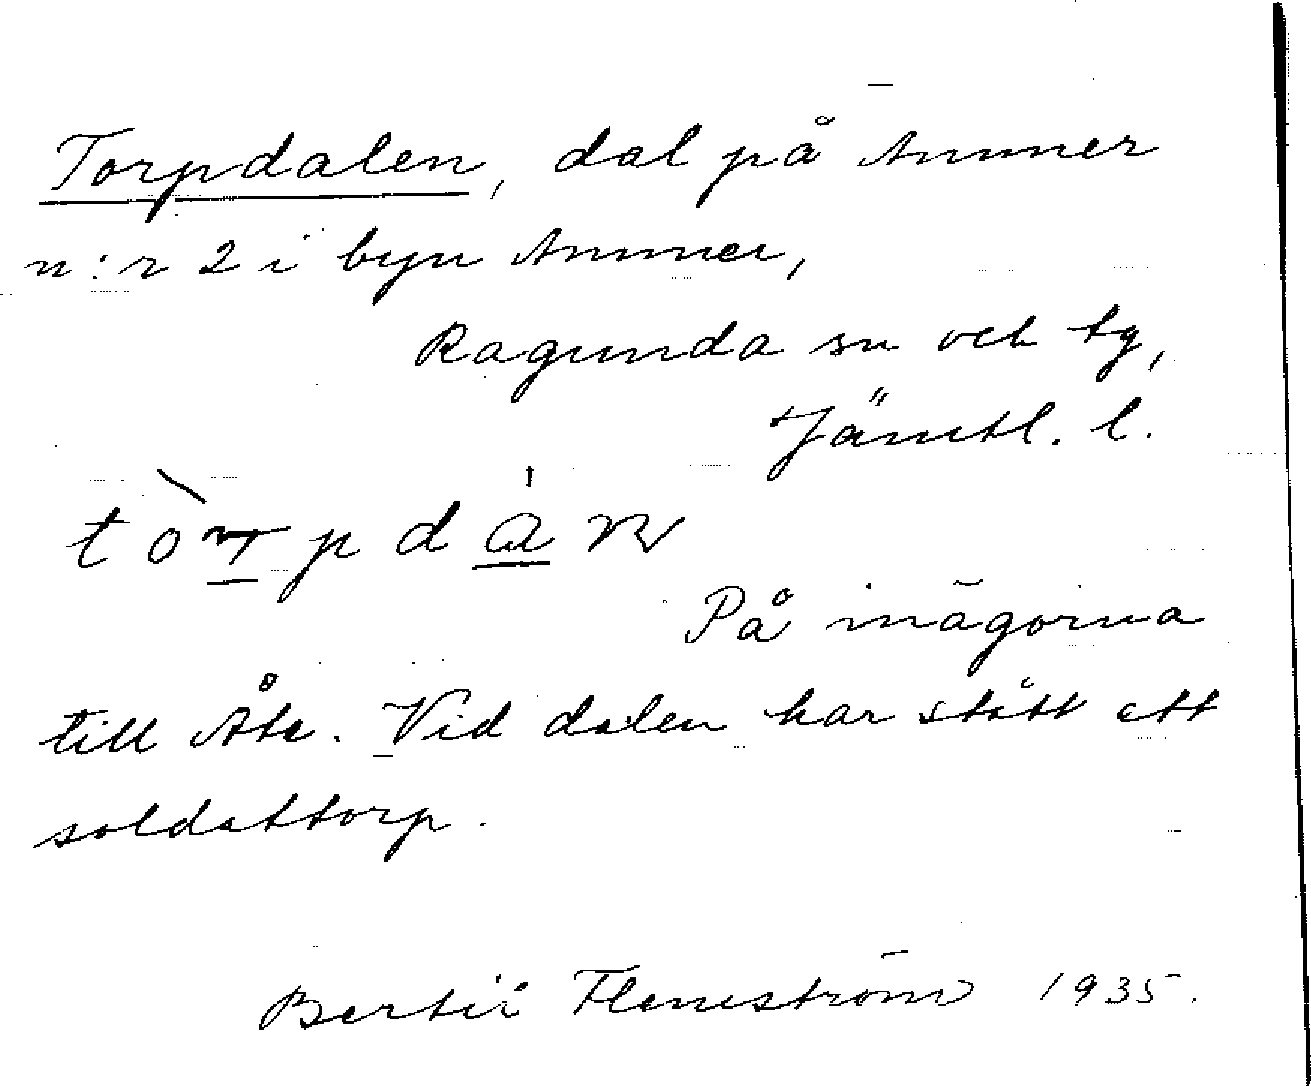 Torpdalen, dal på Ammer
n:r 2 i byn Ammer,
Ragunda sn och tg,
Jämtl. l.
På inägorna
till Åte. Vid dalen har stått ett
soldattorp.
Bertil Flemström 1935.